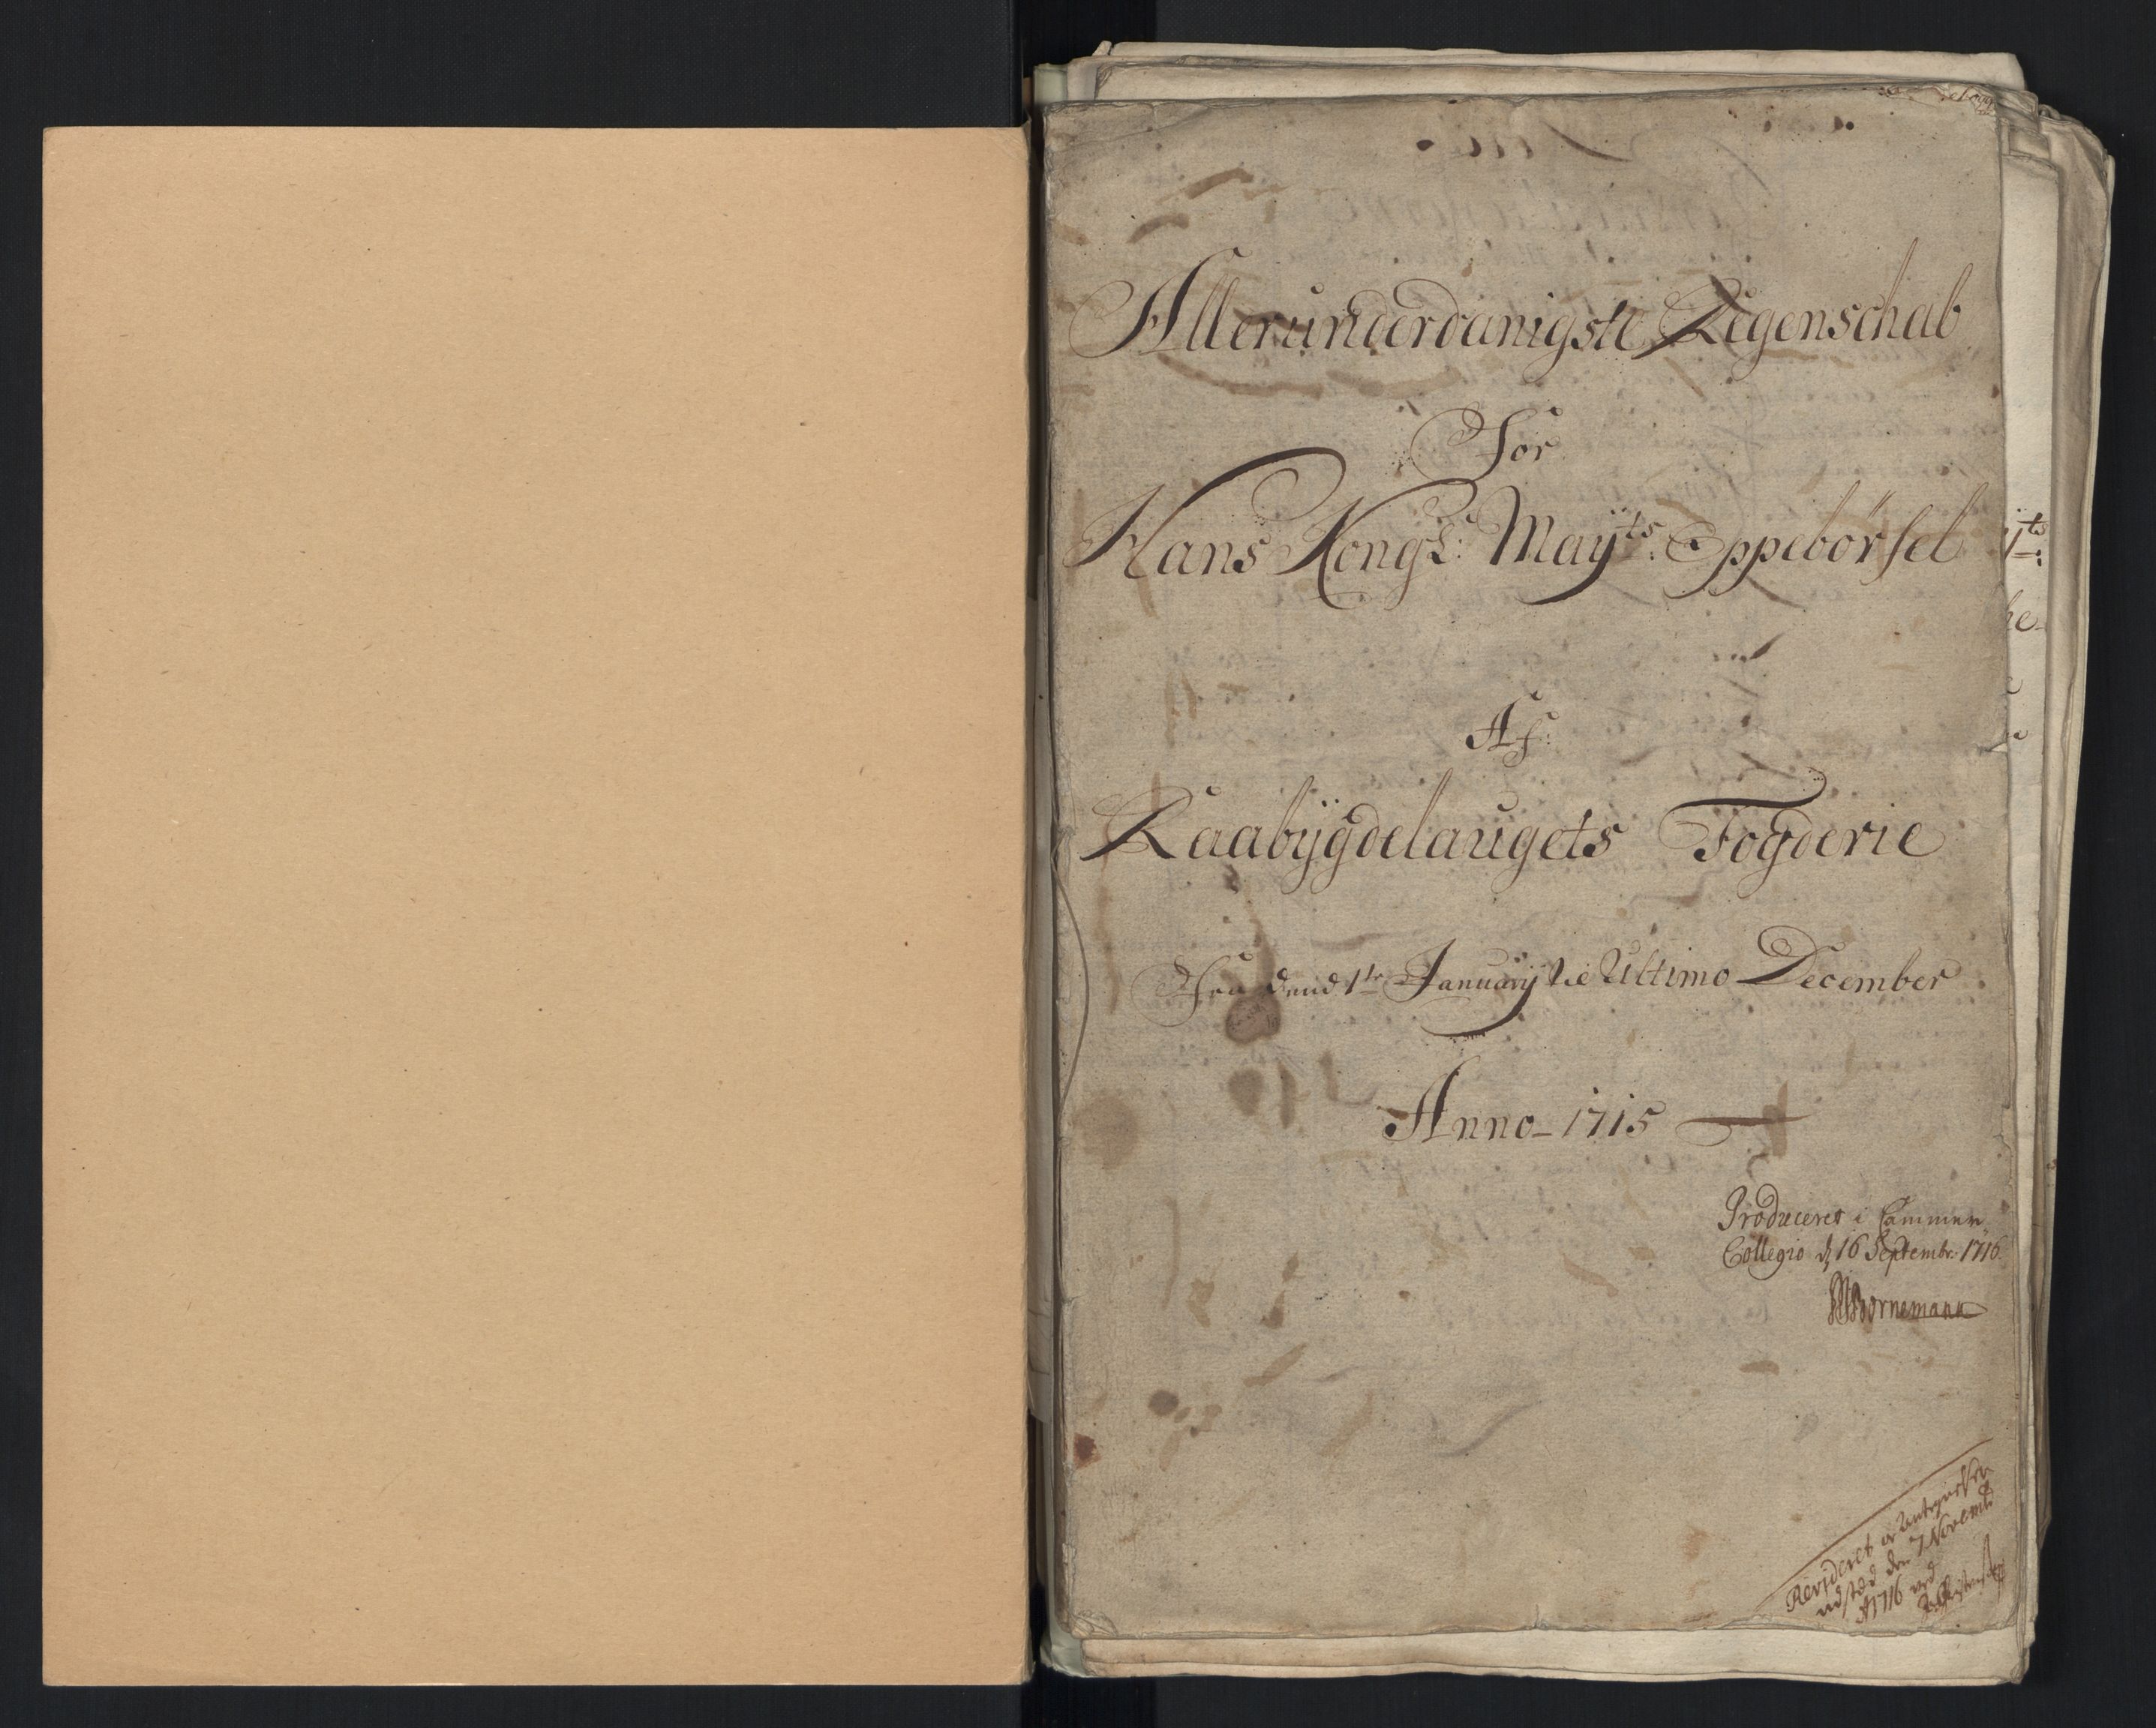 Allerunderdanigste Regenschab
For
Hans Kongl: Mayts: Oppebörsel
Af
Raabÿgdelaugets Fogderie
Fra dend 1te Januarÿ til Ultimo December
Anno 1715
Produceret i Cammer
Collegio d 16 Septembr: 1716
Bornemann
Revideret og
udsted den 7 Novemb
A 1716 ved
ÿts: